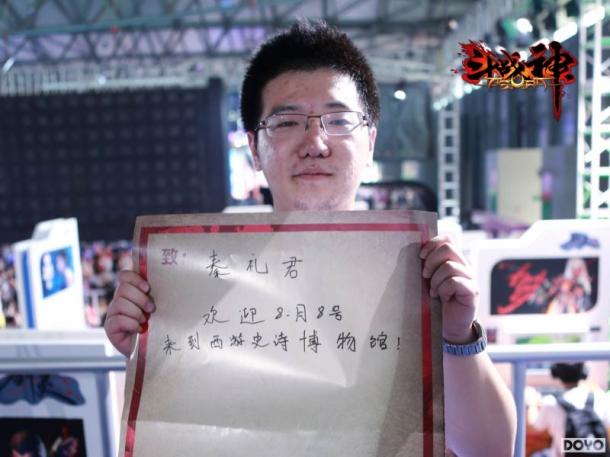 斗战神
致：秦礼君
欢迎8.月8号
来到西游史诗博物馆！
DOYO